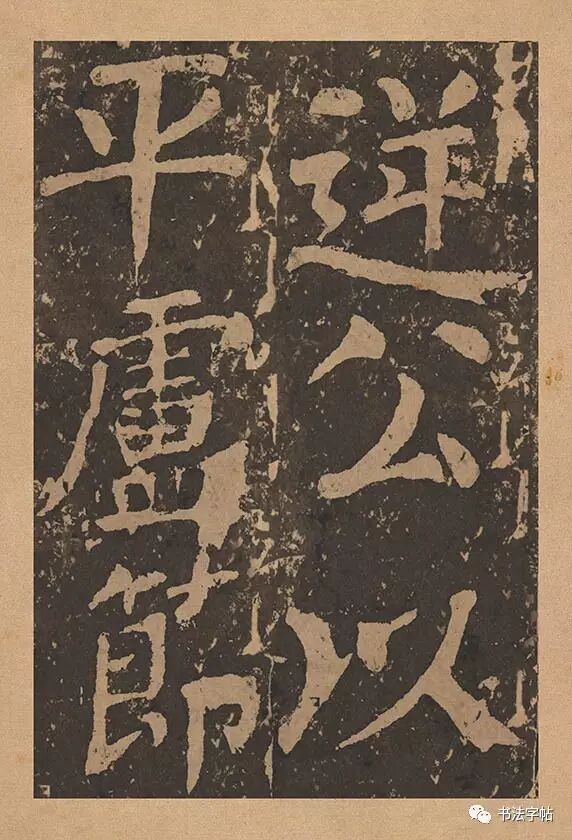 逆公以
平盧節
书法字帖